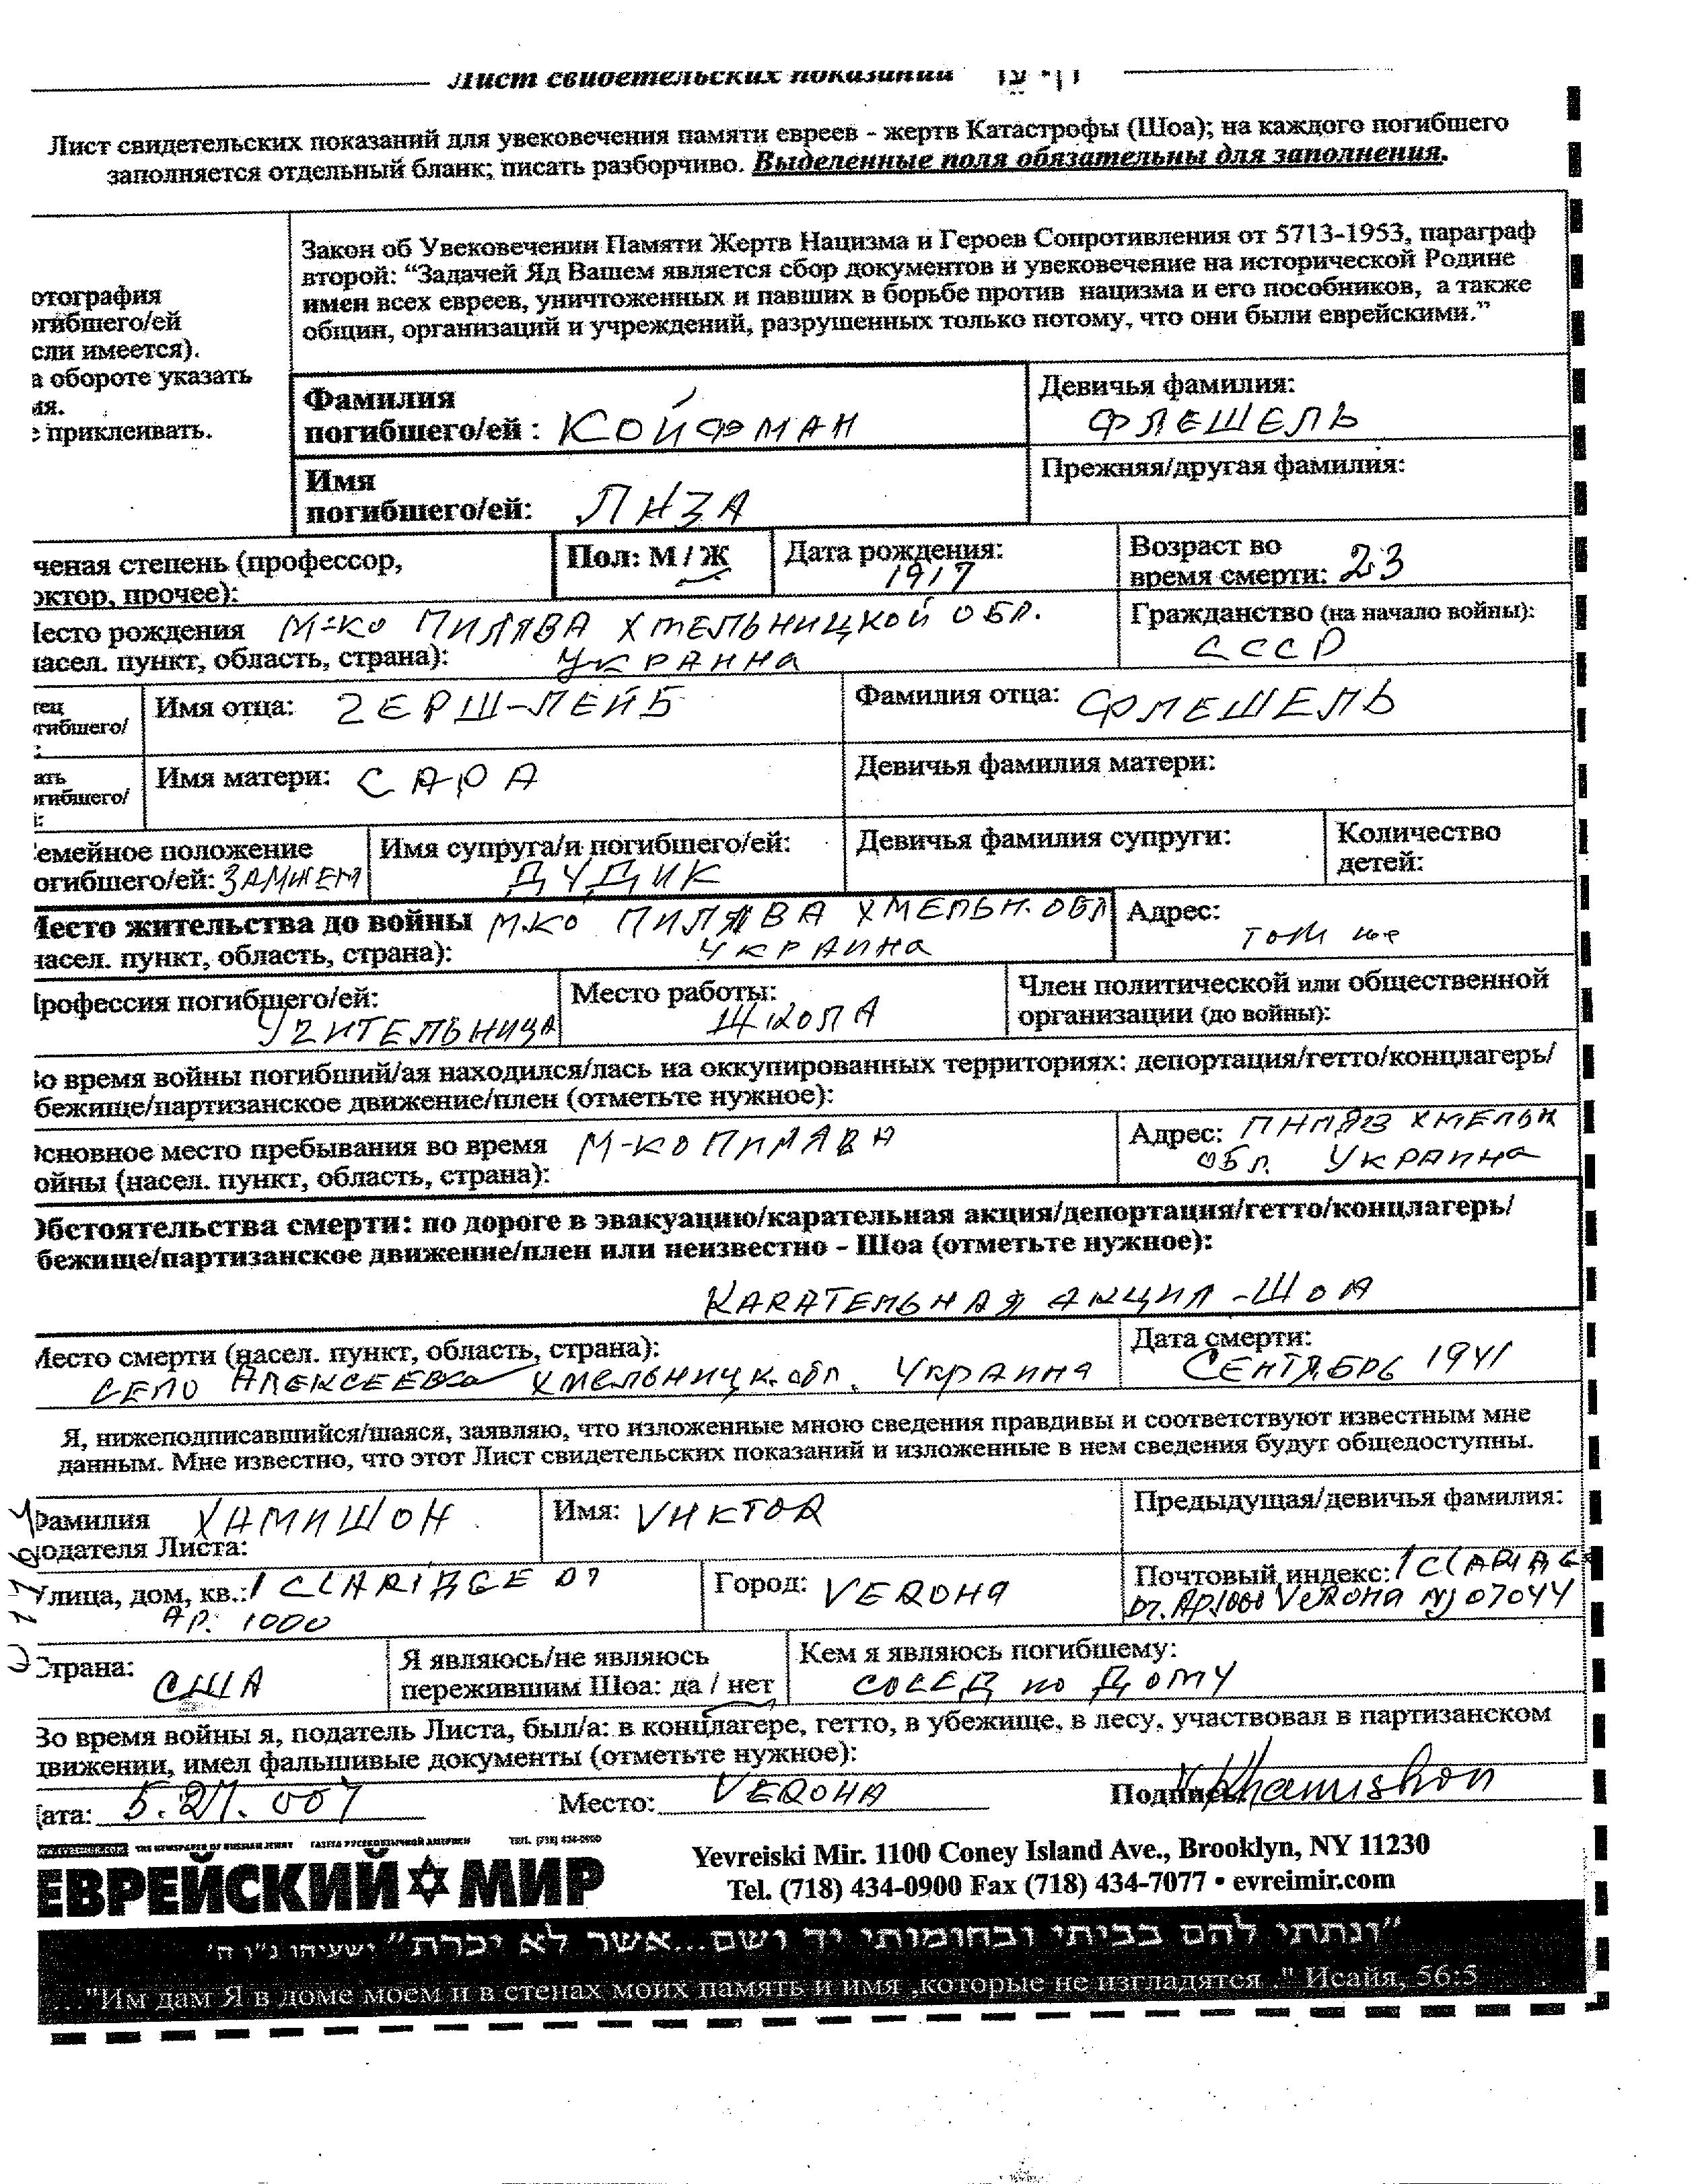 Лист свидетельских показаний דף-עד
Лист свидетельских показаний для увековечения памяти евреев - жертв Катастрофы (Шоа); на каждого погибшего
заполняется отдельный бланк; писать разборчиво. Выделенные поля обязательны для заполнения.
Закон об Увековечении Памяти Жертв Нацизма и Героев Сопротивления от 5713-1953, параграф
второй: “Задачей Яд Вашем является сбор документов и увековечение на исторической Родине
имен всех евреев, уничтоженных и павших в борьбе против нацизма и его пособников, а также
общин, организаций и учреждений, разрушенных только потому, что они были еврейскими.”
отография
огибшего/ей
сли имеется).
а обороте указать
ия.
е приклеивать.
Фамилия
погибшего/ей : КОЙФМАН
Девичья фамилия:
ФЛЕШЕЛЬ
Имя
погибшего/ей: ЛИЗА
Прежняя/другая фамилия:
ченая степень (профессор,
октор, прочее):
Пол: М / Ж
Дата рождения:
1917
Возраст во
время смерти: 23
Место рождения М-КО ПИЛЯВА ХМЕЛЬНИЦКОЙ ОБЛ.
насел. пункт, область, страна): УКРАИНА
Гражданство (на начало войны):
СССР
тец
огибшего/
:
Имя отца: ГЕРШ-ЛЕЙБ
Фамилия отца: ФЛЕШЕЛЬ
ать
огибшего/
й:
Имя матери: САРА
Девичья фамилия матери:
Семейное положение
огибшего/ей: ЗАМУЖЕМ
Имя супруга/и погибшего/ей:
ДУДИК
Девичья фамилия супруги:
Количество
детей:
Место жительства до войны М-КО ПИЛЯВА ХМЕЛЬН. ОБЛ
насел. пункт, область, страна): УКРАИНА
Адрес:
ТОТ же
Профессия погибшего/ей:
УЧИТЕЛЬНИЦА
Место работы:
ШКОЛА
Член политической или общественной
организации (до войны):
Во время войны погибший/ая находился/лась на оккупированных территориях: депортация/гетто/концлагерь/
бежище/партизанское движение/плен (отметьте нужное):
Основное место пребывания во время М-КО ПИЛЯВА
ойны (насел. пункт, область, страна):
Адрес: ПИЛЯВ ХМЕЛЬН
ОБЛ. УКРАИНА
Обстоятельства смерти: по дороге в эвакуацию/карательная акция/депортация/гетто/концлагерь/
бежище/партизанское движение/плен или неизвестно - Шоа (отметьте нужное):
КАРАТЕЛЬНАЯ АКЦИЯ - ШОА
Место смерти (насел. пункт, область, страна):
СЕЛО АЛЕКСЕЕВКА ХМЕЛЬНИЦК. обл. УКРАИНА
Дата смерти:
СЕНТЯБРЬ 1941
Я, нижеподписавшийся/шаяся, заявляю, что изложенные мною сведения правдивы и соответствуют известным мне
данным. Мне известно, что этот Лист свидетельских показаний и изложенные в нем сведения будут общедоступны.
Фамилия ХАМИШОН
подателя Листа:
Имя: ВИКТОR
Предыдущая/девичья фамилия:
Улица, дом, кв.: 1 CLARIDGE Dr
AP. 1000
Город: VEROНА
Почтовый индекс: 1 CLARIDGE
Dr. AP.1000 VEROНА NJ 07044
Страна:
США
Я являюсь/не являюсь
пережившим Шоа: да / нет
Кем я являюсь погибшему:
СОСЕД по ДОМУ
Во время войны я, податель Листа, был/а: в концлагере, гетто, в убежище, в лесу, участвовал в партизанском
движении, имел фальшивые документы (отметьте нужное):
Дата: 5.27.007 Место: VEROНА Подпись: V Khamishon
THE NEWSPAPER OF RUSSIAN JEWRY ГАЗЕТА РУССКОЯЗЫЧНОЙ АМЕРИКИ ТЕЛ. (718) 434-0900
ЕВРЕЙСКИЙ МИР
Yevreiski Mir. 1100 Coney Island Ave., Brooklyn, NY 11230
Tel. (718) 434-0900 Fax (718) 434-7077 • evreimir.com
"ונתתי להם בביתי ובחומותי יד ושם...אשר לא יכרת" ישעיהו נ"ו ה'
"Им дам Я в доме моем и в стенах моих память и имя ,которые не изгладятся ." Исайя, 56:5